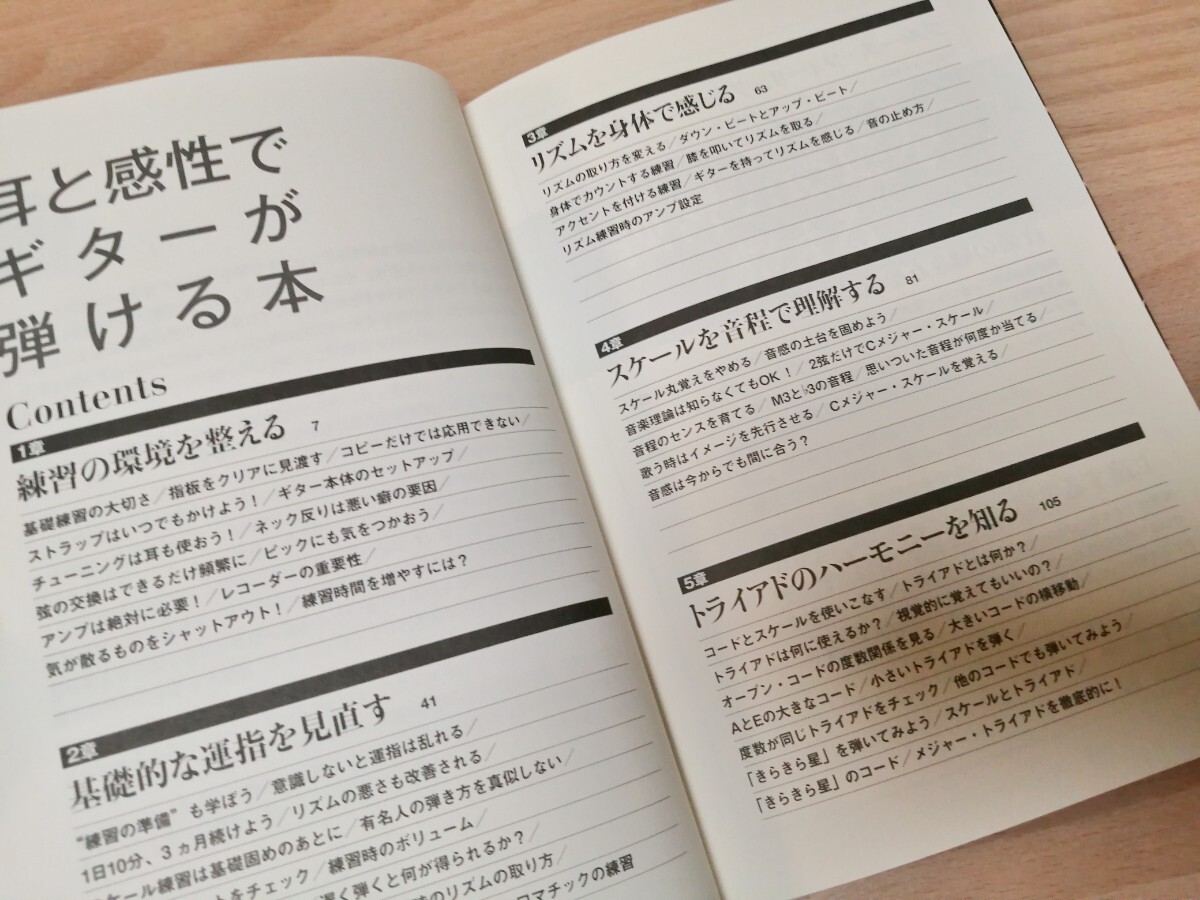 耳と感性で
ギターが
弾ける本
Contents
1章
練習の環境を整える 7
基礎練習の大切さ／指板をクリアに見渡す／コピーだけでは応用できない／
ストラップはいつでもかけよう！／ギター本体のセットアップ／
チューニングは耳も使おう！／ネック反りは悪い癖の要因／
弦の交換はできるだけ頻繁に／ピックにも気をつかおう／
アンプは絶対に必要！／レコーダーの重要性／
気が散るものをシャットアウト！／練習時間を増やすには？
2章
基礎的な運指を見直す 41
“練習の準備”も学ぼう／意識しないと運指は乱れる／
1日10分、3ヵ月続けよう／リズムの悪さも改善される／
スケール練習は基礎固めのあとに／有名人の弾き方を真似しない／
をチェック／練習時のボリューム／
弾くと何が得られるか？／
のリズムの取り方／
ロマチックの練習
3章
リズムを身体で感じる 63
リズムの取り方を変える／ダウン・ビートとアップ・ビート／
身体でカウントする練習／膝を叩いてリズムを取る／
アクセントを付ける練習／ギターを持ってリズムを感じる／音の止め方／
リズム練習時のアンプ設定
4章
スケールを音程で理解する 81
スケール丸覚えをやめる／音感の土台を固めよう／
音楽理論は知らなくてもOK！／2弦だけでCメジャー・スケール／
音程のセンスを育てる／M3と♭3の音程／思いついた音程が何度か当てる／
歌う時はイメージを先行させる／Cメジャー・スケールを覚える／
音感は今からでも間に合う？
5章
トライアドのハーモニーを知る 105
コードとスケールを使いこなす／トライアドとは何か？／
トライアドは何に使えるか？／視覚的に覚えてもいいの？／
オープン・コードの度数関係を見る／大きいコードの横移動／
AとEの大きなコード／小さいトライアドを弾く／
度数が同じトライアドをチェック／他のコードでも弾いてみよう／
「きらきら星」を弾いてみよう／スケールとトライアド／
「きらきら星」のコード／メジャー・トライアドを徹底的に！